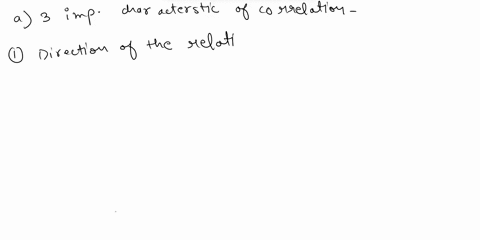 a) 3 imp. characterstic of correlation -
① Direction of the relati